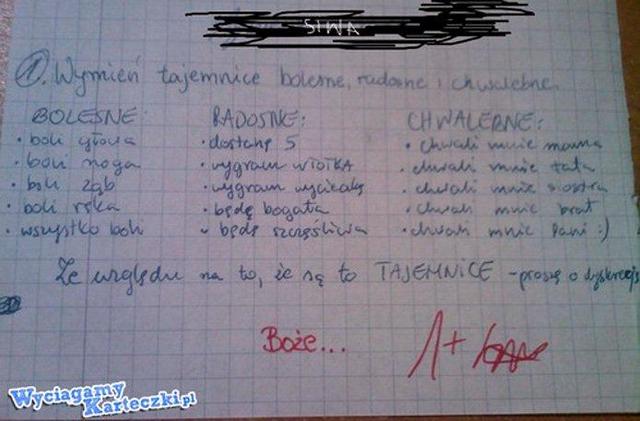 SIWA
1. Wymień tajemnice bolesne, radosne i chwalebne.
BOLESNE: RADOSNE: CHWALEBNE:
• boli głowa • dostanę 5 • chwali mnie mama
• boli noga • wygram WIOTKA • chwali mnie tata
• boli ząb • wygram wycieczkę • chwali mnie siostra
• boli ręka • będę bogata • chwali mnie brat
• wszystko boli • będę szczęśliwa • chwali mnie Pani :)
Ze względu na to, że są to TAJEMNICE - proszę o dyskrecję
Boże... 1+
Wyciagamy
Karteczki.pl